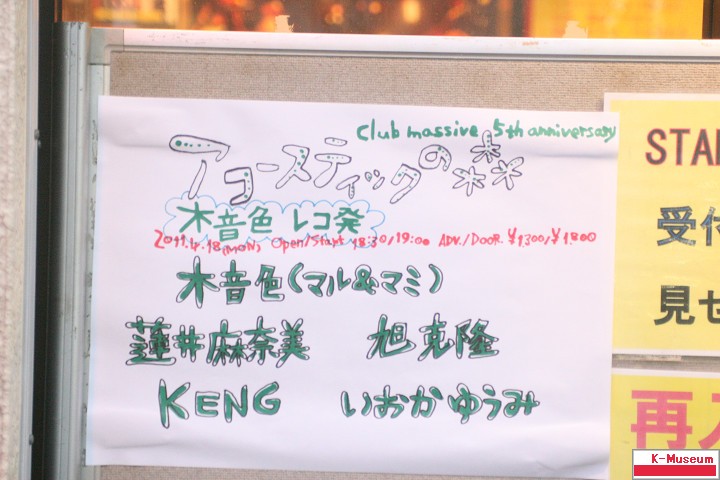 club massive 5th anniversary
アコースティックの森
木音色 レコ発
2011.4.18(MON) Open/Start 18:30/19:00 ADV./DOOR ¥1,300/¥1,800
木音色(マル&マミ)
蓮井麻奈美 旭克隆
KENG いおかゆうみ
STA
受付
見せ
再入
K-Museum